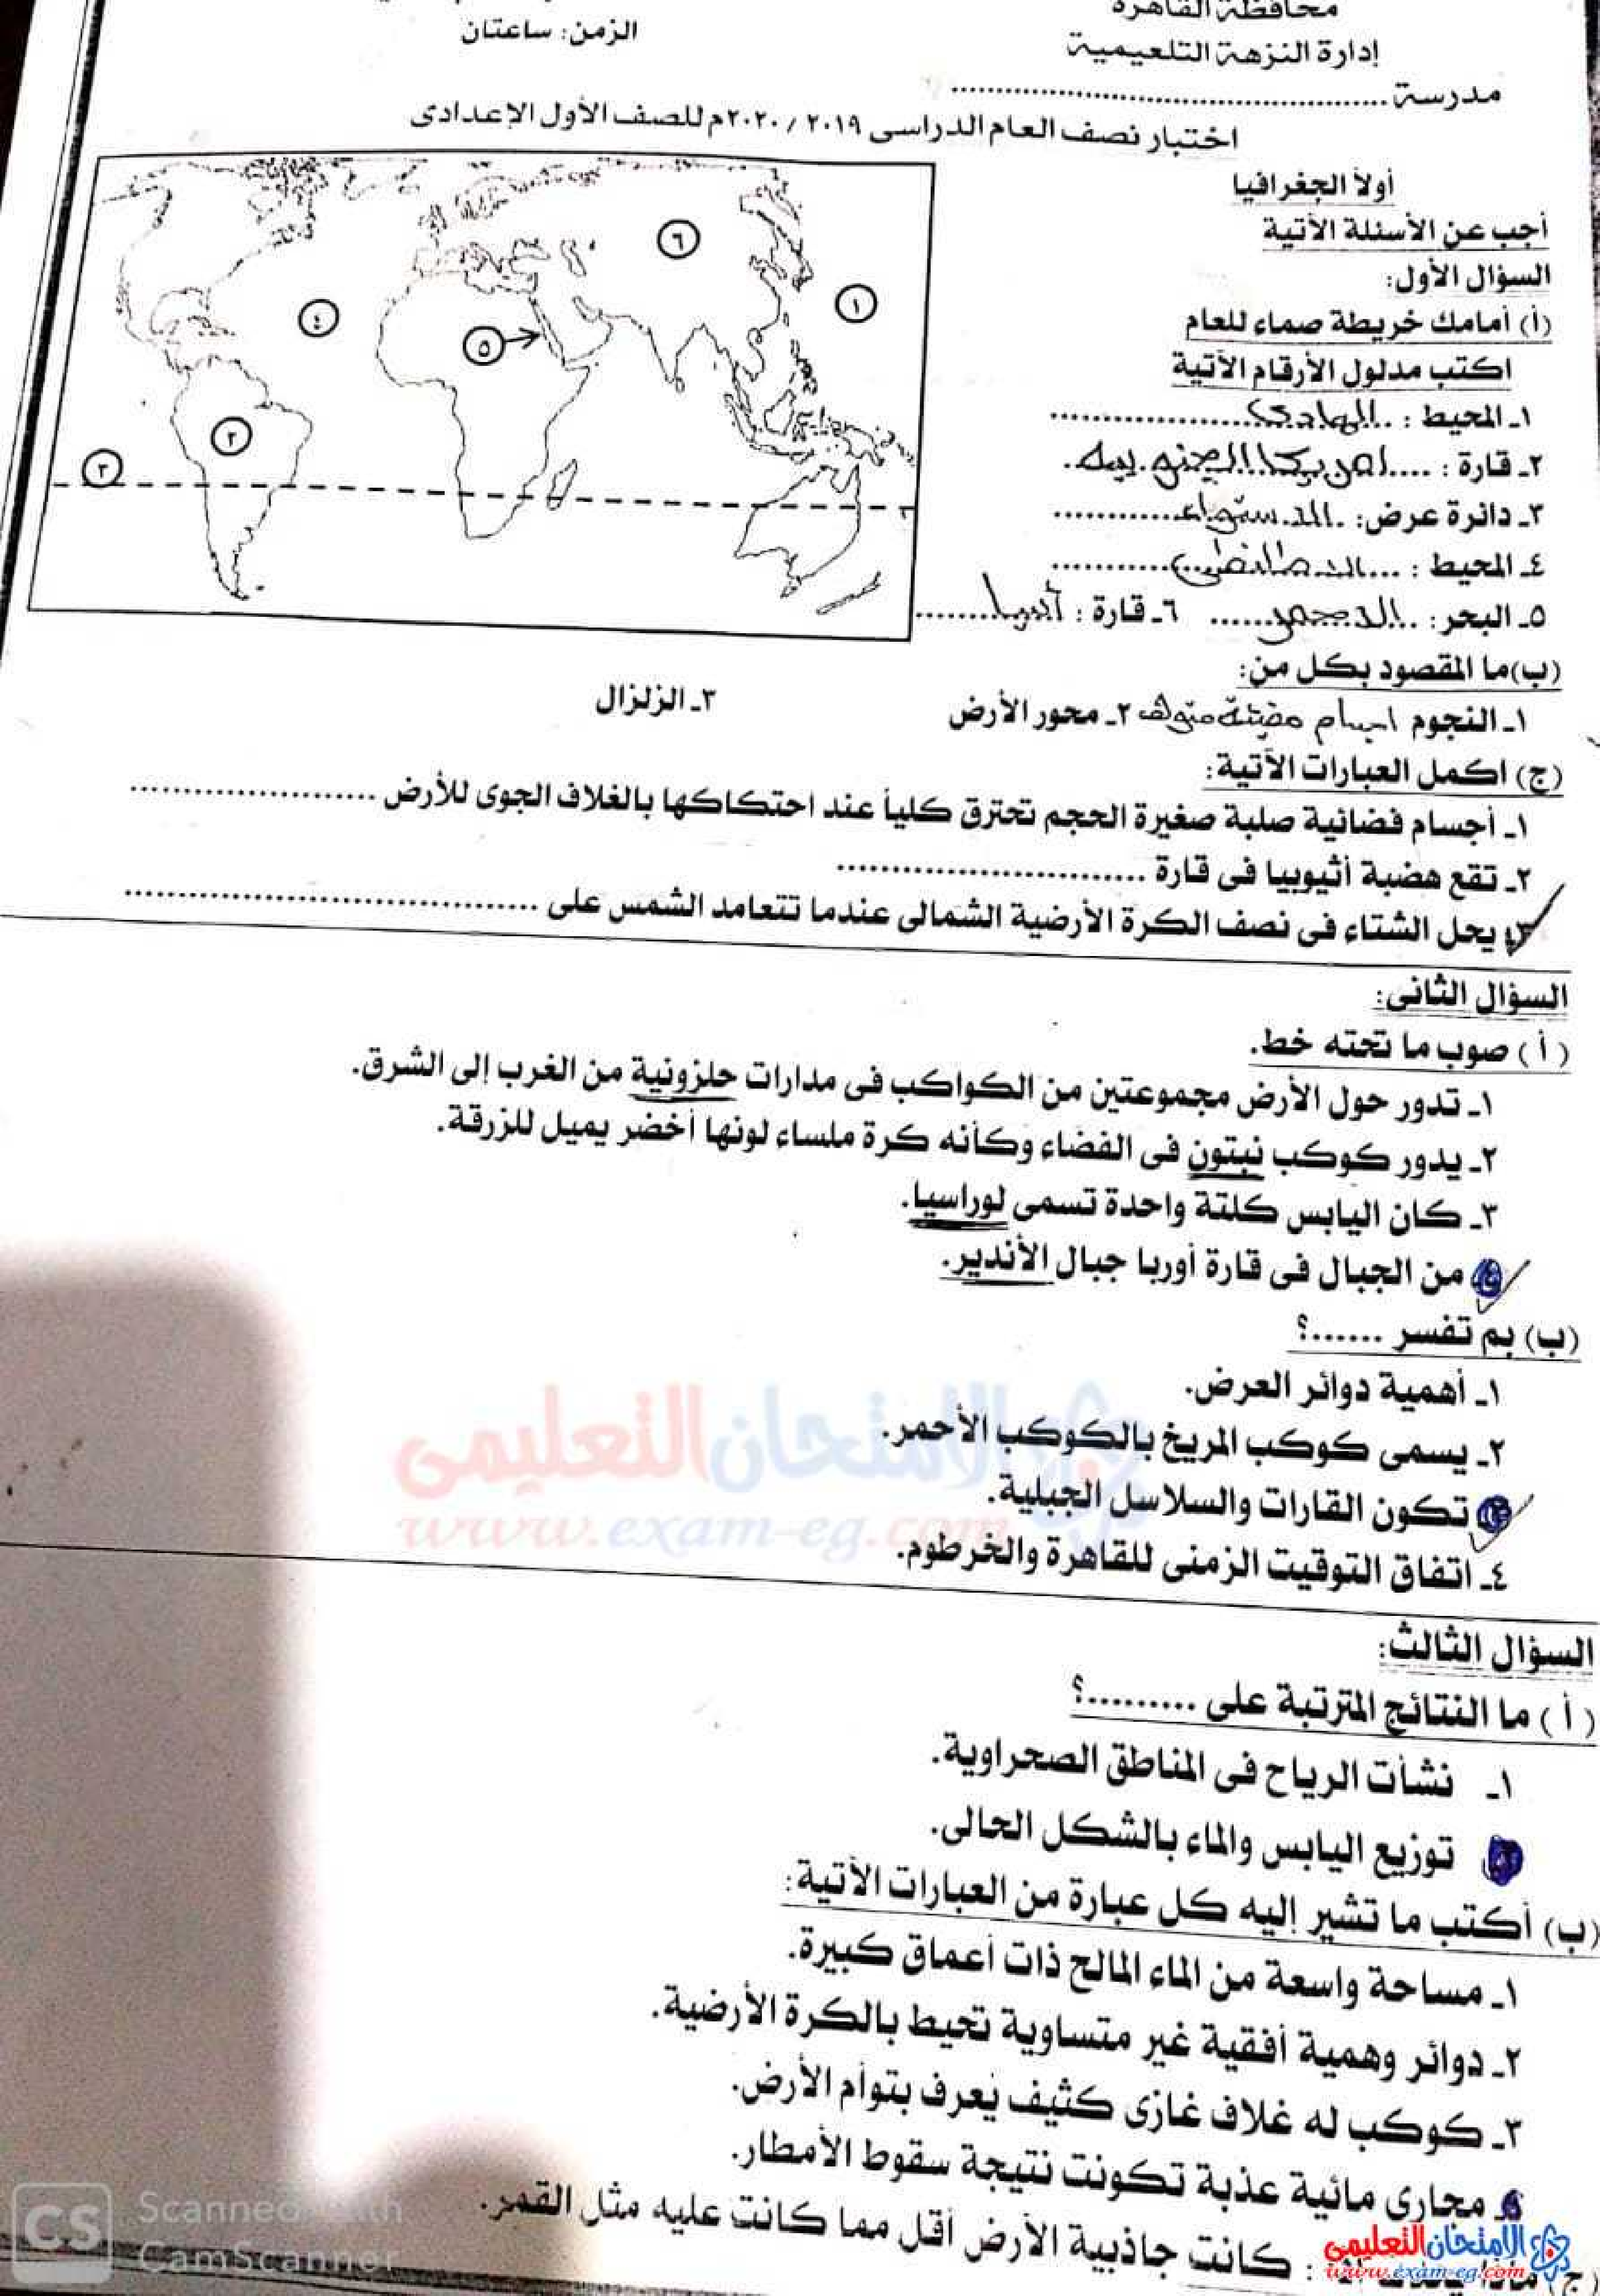 محافظة القاهرة
إدارة النزهة التلعيمية
الزمن: ساعتان
مدرسة ......................
اختبار نصف العام الدراسى ٢٠١٩ / ٢٠٢٠م للصف الأول الإعدادى
أولاً الجغرافيا
أجب عن الأسئلة الأتية
السؤال الأول:
(أ) أمامك خريطة صماء للعام
اكتب مدلول الأرقام الأتية
١ـ المحيط : ..الهادى............
٢ـ قارة : ....امريكا الجنوبيه.
٣ـ دائرة عرض: .الاستواء............
٤ـ المحيط : ...الاطلنطى............
٥ـ البحر: ..الاحمر...... ٦ـ قارة : أسيا........
٦
١
٤
٥
٢
٣
(ب) ما المقصود بكل من:
١ـ النجوم اجسام مضيئة ٢ـ محور الأرض ٣ـ الزلزال
(ج) اكمل العبارات الأتية:
١ـ أجسام فضائية صلبة صغيرة الحجم تحترق كلياً عند احتكاكها بالغلاف الجوى للأرض ......................
٢ـ تقع هضبة أثيوبيا فى قارة ............................
٣ـ يحل الشتاء فى نصف الكرة الأرضية الشمالى عندما تتعامد الشمس على ......................................
السؤال الثانى:
( أ ) صوب ما تحته خط.
١ـ تدور حول الأرض مجموعتين من الكواكب فى مدارات حلزونية من الغرب إلى الشرق.
٢ـ يدور كوكب نبتون فى الفضاء وكأنه كرة ملساء لونها أخضر يميل للزرقة.
٣ـ كان اليابس كلتة واحدة تسمى لوراسيا.
٤ـ من الجبال فى قارة أوربا جبال الأندير.
(ب) بم تفسر ......؟
١ـ أهمية دوائر العرض.
٢ـ يسمى كوكب المريخ بالكوكب الأحمر.
٣ـ تكون القارات والسلاسل الجبلية.
٤ـ اتفاق التوقيت الزمنى للقاهرة والخرطوم.
الامتحان التعليمى
www.exam-eg.com
السؤال الثالث:
( أ ) ما النتائج المترتبة على .........؟
١ـ نشأت الرياح فى المناطق الصحراوية.
توزيع اليابس والماء بالشكل الحالى.
(ب) أكتب ما تشير إليه كل عبارة من العبارات الأتية:
١ـ مساحة واسعة من الماء المالح ذات أعماق كبيرة.
٢ـ دوائر وهمية أفقية غير متساوية تحيط بالكرة الأرضية.
٣ـ كوكب له غلاف غازى كثيف يُعرف بتوأم الأرض.
مجارى مائية عذبة تكونت نتيجة سقوط الأمطار.
: كانت جاذبية الأرض أقل مما كانت عليه مثل القمر.
CS Scanned with
CamScanner
الامتحان التعليمى
www.exam-eg.com